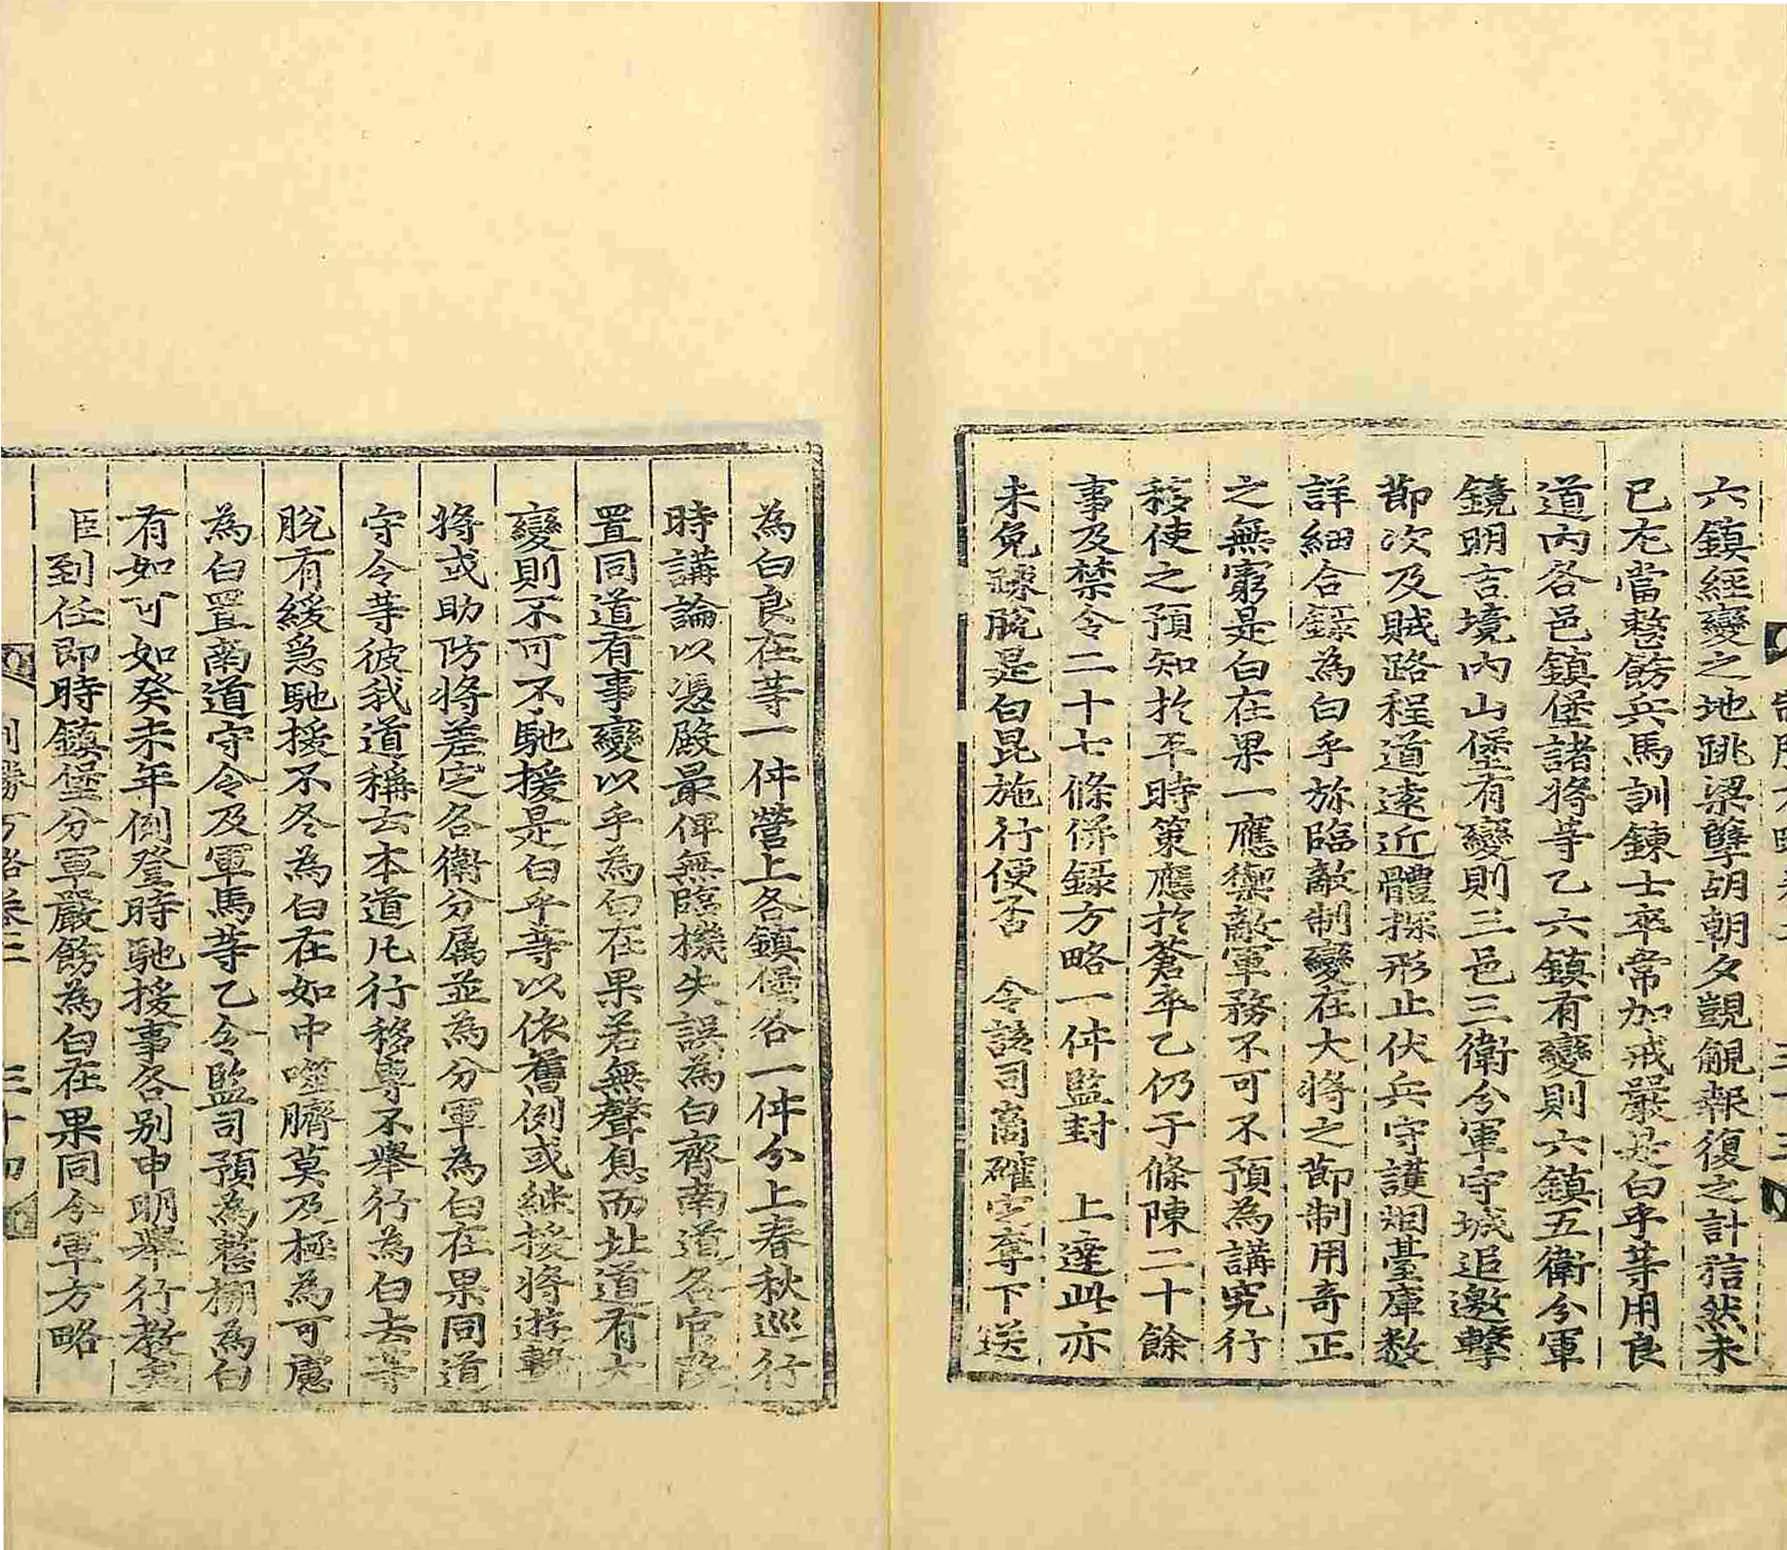 六鎭經變之地跳梁孽胡朝夕覬覦報復之計猘然未
已尤當整飭兵馬訓鍊士卒常加戒嚴是白乎等用良
道内各邑鎭堡諸將等乙六鎭有變則六鎭五衛分軍
鏡明言境内山堡有變則三邑三衛分軍守城追邀擊
節次及賊路程道遠近體探形止伏兵守護烟臺庫数
詳細合錄為白乎旀臨敵制變在大將之節制用奇正
之無窮是白在果一應禦敵軍務不可不預為講究行
移使之預知於平時策應於蒼卒乙仍于條陳二十餘
事及禁令二十七條併録方略一件監封　上達此亦
未免疎脫是白昆施行便否　令該司商確定奪下送
為白良在等一件營上各鎭堡各一件分上春秋巡行
時講論以憑殿最俾無臨機失誤為白齊南道各官防
置同道有事變以乎為白在果若無聲息而北道有大
變則不可不馳援是白乎等以依舊例或継援將遊擊
將或助防將差定各衛分属並為分軍為白在果同道
守令等彼我道稱云本道凡行移專不舉行為白去等
脫有緩急馳援不冬為白在如中噬臍莫及極為可慮
為白置南道守令及軍馬等乙令監司預為整搠為白
有如可如癸未年例登時馳援事各别申明舉行教矣
臣到任即時鎭堡分軍嚴飭為白在果同分軍方略
制勝方略卷二　三十四